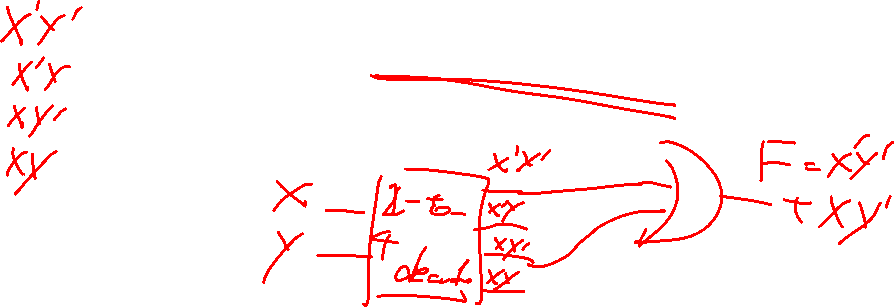 X'Y'
X'Y
XY'
XY
X
Y
2-to-
4
decoder
X'Y'
XY
XY'
XY
F = X'Y'
+ XY'